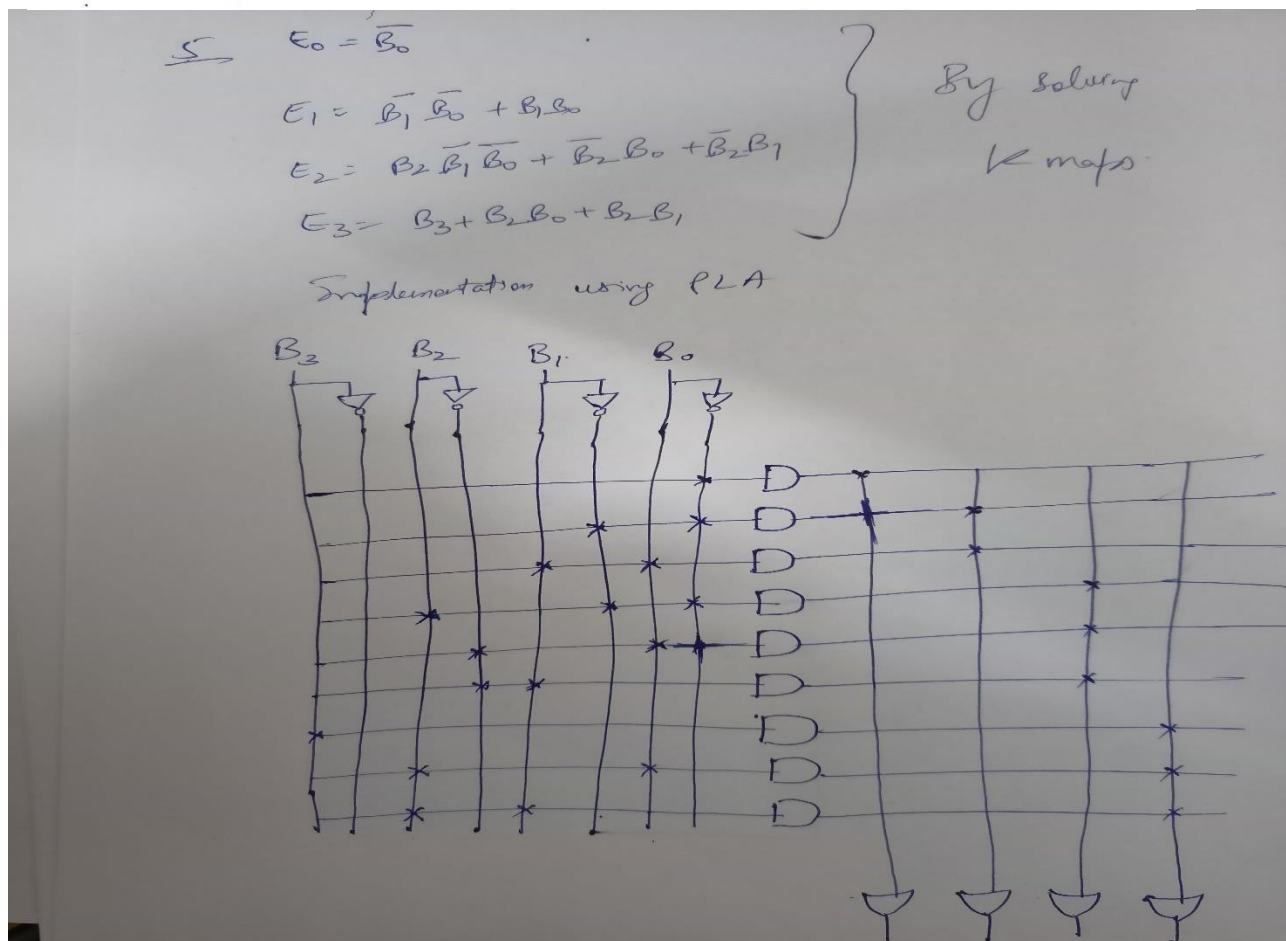 5 E₀ = B̅₀
E₁ = B̅₁ B̅₀ + B₁B₀
E₂ = B₂ B̅₁ B̅₀ + B̅₂ B₀ + B̅₂ B₁
E₃ = B₃ + B₂B₀ + B₂B₁
By solving
K maps.
Implementation using PLA
B₃ B₂ B₁ B₀